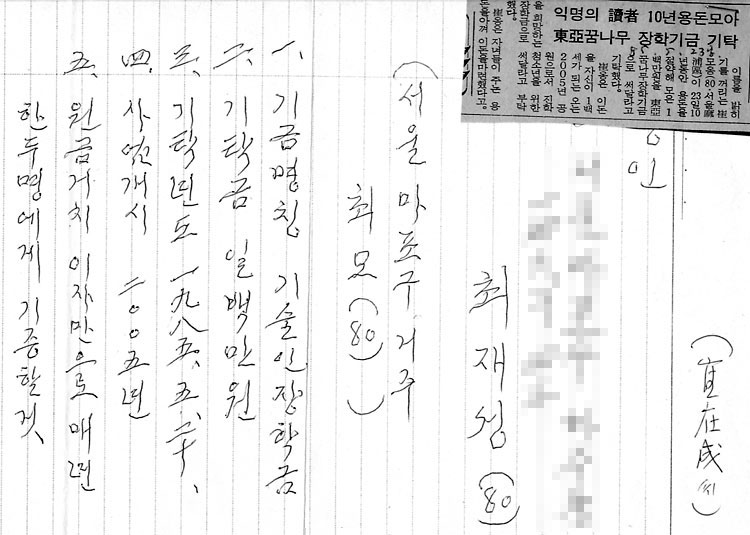 익명의 讀者 10년용돈모아
東亞꿈나무 장학기금 기탁
이름을 밝히
기를 꺼리는 崔
모옹80서울麻
浦區이 23일10
년동안 용돈을
절약해 모은 1
백만원을 東亞
꿈나무장학기금
으로 써달라고
기탁했다.
崔옹은 이돈
을 자신이 1백
세가 되는 오는
2005년 공
청소년을 위한
장학금으로
써달라고 부탁
했다.
崔옹은 자녀들이 주는 용
돈을아껴 이돈을마련했다고.
(崔在成氏)
최재성(80)
(서울 마포구 거주
최모(80))
一、 기금명칭 기술인장학금
二、 기탁금 일백만원
三、 기탁년도 一九八五、五、二十、
四、 사업개시 二○○五년
五、 원금거치 이자만으로 매년
한두명에게 기증할것、